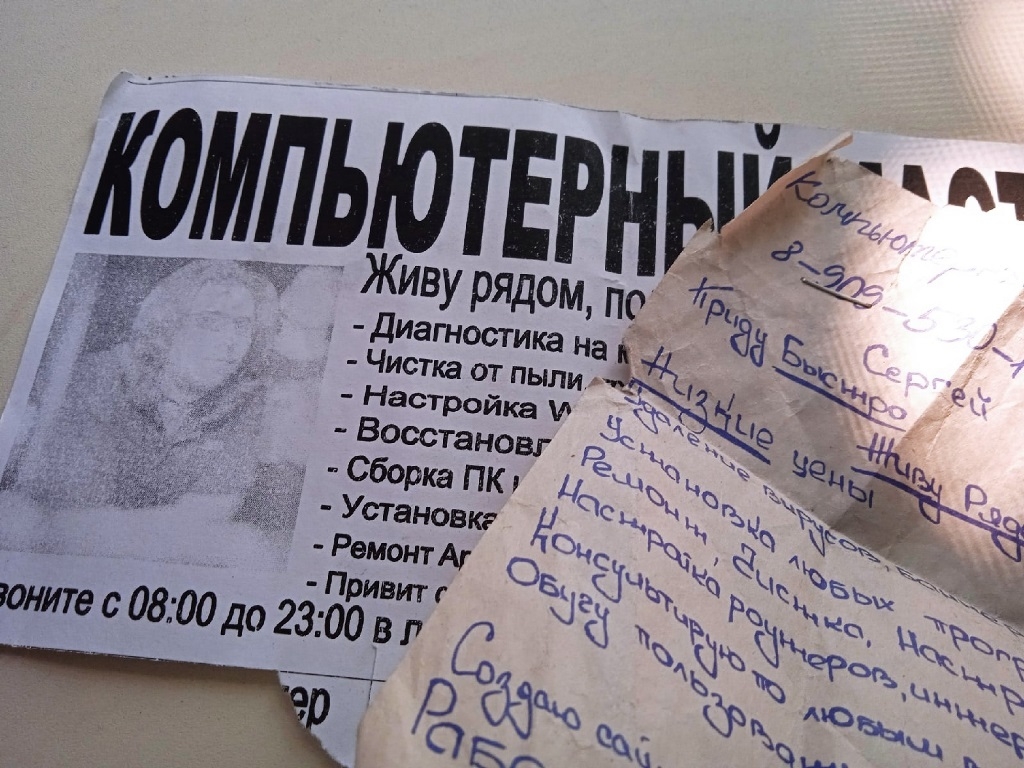 КОМПЬЮТЕРНЫЙ
Живу рядом, по
- Диагностика на
- Чистка от пыли,
- Настройка W
- Восстановл
- Сборка ПК
- Установка
- Ремонт Ar
- Привит
воните с 08:00 до 23:00 в л
ер
Компьютерн
8-909-530-
Сергей
Приду Быстро
Живу Ряд
Низкие цены
Удаление вирусов,
Установка любых прогр
Ремонт, Чистка, Настр
Настройка роутеров, интер
Консультирую по любым
Обучу пользован
Создаю сай
РАБО